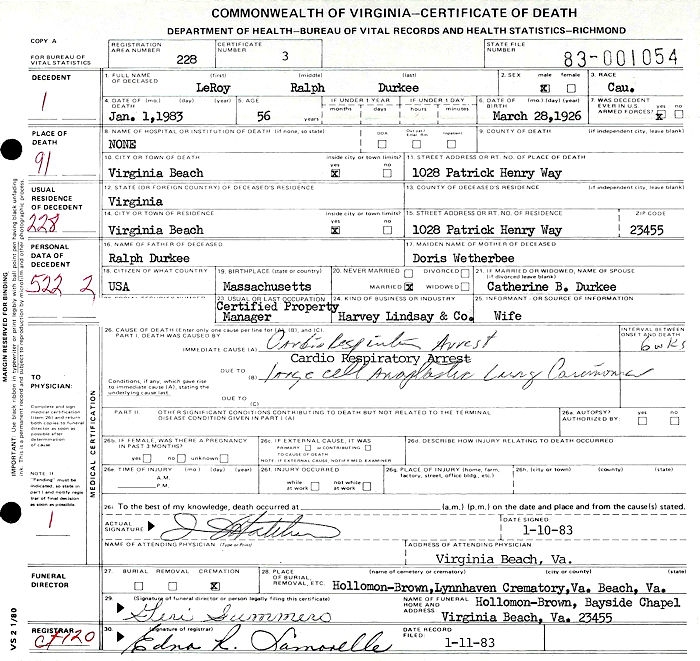 COMMONWEALTH OF VIRGINIA—CERTIFICATE OF DEATH
DEPARTMENT OF HEALTH—BUREAU OF VITAL RECORDS AND HEALTH STATISTICS—RICHMOND
COPY A
FOR BUREAU OF VITAL STATISTICS
REGISTRATION AREA NUMBER 228
CERTIFICATE NUMBER 3
STATE FILE NUMBER 83-001054
DECEDENT
1
1. FULL NAME OF DECEASED (first) (middle) (last)
LeRoy Ralph Durkee
2. SEX male female
X
3. RACE
Cau.
4. DATE OF DEATH (mo.) (day) (year)
Jan. 1,1983
5. AGE
56 years
IF UNDER 1 YEAR months days
IF UNDER 1 DAY hours minutes
6. DATE OF BIRTH (mo.) (day) (year)
March 28,1926
7. WAS DECEDENT EVER IN U.S. ARMED FORCES? yes no
X
PLACE OF DEATH
91
8. NAME OF HOSPITAL OR INSTITUTION OF DEATH (if none, so state)
NONE
DOA Out pat/ Emer. Rm Inpatient
9. COUNTY OF DEATH (if independent city, leave blank)
10. CITY OR TOWN OF DEATH inside city or town limits? yes no
Virginia Beach X
11. STREET ADDRESS OR RT. NO. OF PLACE OF DEATH
1028 Patrick Henry Way
USUAL RESIDENCE OF DECEDENT
228
12. STATE (OR FOREIGN COUNTRY) OF DECEASED'S RESIDENCE
Virginia
13. COUNTY OF DECEASED'S RESIDENCE (if independent city, leave blank)
14. CITY OR TOWN OF RESIDENCE inside city or town limits? yes no
Virginia Beach X
15. STREET ADDRESS OR RT. NO. OF RESIDENCE ZIP CODE
1028 Patrick Henry Way 23455
PERSONAL DATA OF DECEDENT
522 2
16. NAME OF FATHER OF DECEASED
Ralph Durkee
17. MAIDEN NAME OF MOTHER OF DECEASED
Doris Wetherbee
18. CITIZEN OF WHAT COUNTRY
USA
19. BIRTHPLACE (state or country)
Massachusetts
20. NEVER MARRIED DIVORCED
MARRIED X WIDOWED
21. IF MARRIED OR WIDOWED, NAME OF SPOUSE
(if divorced leave blank)
Catherine B. Durkee
23. USUAL OR LAST OCCUPATION
Certified Property Manager
24. KIND OF BUSINESS OR INDUSTRY
Harvey Lindsay & Co.
25. INFORMANT - OR SOURCE OF INFORMATION
Wife
MARGIN RESERVED FOR BINDING
TO PHYSICIAN:
Complete and sign medical certification (item 26) and return both copies to funeral director as soon as possible after determination of cause
NOTE: If "Pending" must be indicated, so state in part I and notify registrar of final decision as soon as possible.
1
MEDICAL CERTIFICATION
26. CAUSE OF DEATH (Enter only one cause per line for (A), (B), and (C).
PART I. DEATH WAS CAUSED BY:
IMMEDIATE CAUSE (A) Cardio Respiratory Arrest
Cardio Respiratory Arrest
INTERVAL BETWEEN ONSET AND DEATH
6 wks
Conditions, if any, which gave rise to immediate cause (A), stating the underlying cause last.
DUE TO (B) large cell Anaplastic Lung Carcinoma
DUE TO (C)
PART II. OTHER SIGNIFICANT CONDITIONS CONTRIBUTING TO DEATH BUT NOT RELATED TO THE TERMINAL DISEASE CONDITION GIVEN IN PART I (A)
26a. AUTOPSY? yes no
AUTHORIZED BY:
26b. IF FEMALE, WAS THERE A PREGNANCY IN PAST 3 MONTHS?
yes no unknown
26c. IF EXTERNAL CAUSE, IT WAS
PRIMARY or CONTRIBUTING
TO CAUSE OF DEATH
NOTE: IF EXTERNAL CAUSE, NOTIFY MED. EXAMINER
26d. DESCRIBE HOW INJURY RELATING TO DEATH OCCURRED
26e. TIME OF INJURY (mo.) (day) (year)
A.M.
P.M.
26f. INJURY OCCURRED
while at work not while at work
26g. PLACE OF INJURY (home, farm, factory, street, office bldg., etc.)
26h. (city or town) (county) (state)
26i. To the best of my knowledge, death occurred at (a.m.) (p.m.) on the date and place and from the cause(s) stated.
ACTUAL SIGNATURE
DATE SIGNED
1-10-83
NAME OF ATTENDING PHYSICIAN (Type or Print)
ADDRESS OF ATTENDING PHYSICIAN
Virginia Beach, Va.
FUNERAL DIRECTOR
27. BURIAL REMOVAL CREMATION
X
28. PLACE OF BURIAL, REMOVAL, ETC. (name of cemetery or crematory) (city or county) (state)
Hollomon-Brown,Lynnhaven Crematory,Va. Beach, Va.
29. (Signature of funeral director or person legally filing this certificate)
Geri Summers
NAME OF FUNERAL HOME AND ADDRESS
Hollomon-Brown, Bayside Chapel
Virginia Beach, Va. 23455
REGISTRAR
30. (signature of registrar)
DATE RECORD FILED:
1-11-83
VS 2 1/80